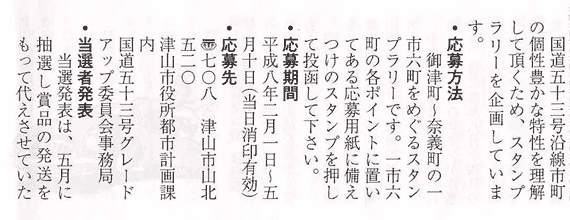 国道五十三号沿線市町
の個性豊かな特性を理解
して頂くため、スタンプ
ラリーを企画していま
す。
•応募方法
御津町〜奈義町の一
市六町をめぐるスタン
プラリーです。一市六
町の各ポイントに置い
てある応募用紙に備え
つけのスタンプを押し
て投函して下さい。
•応募期間
平成八年二月一日〜五
月十日(当日消印有効)
•応募先
〒七〇八 津山市山北
五二〇
津山市役所都市計画課
内
国道五十三号グレード
アップ委員会事務局
•当選者発表
当選発表は、五月に
抽選し賞品の発送を
もって代えさせていた